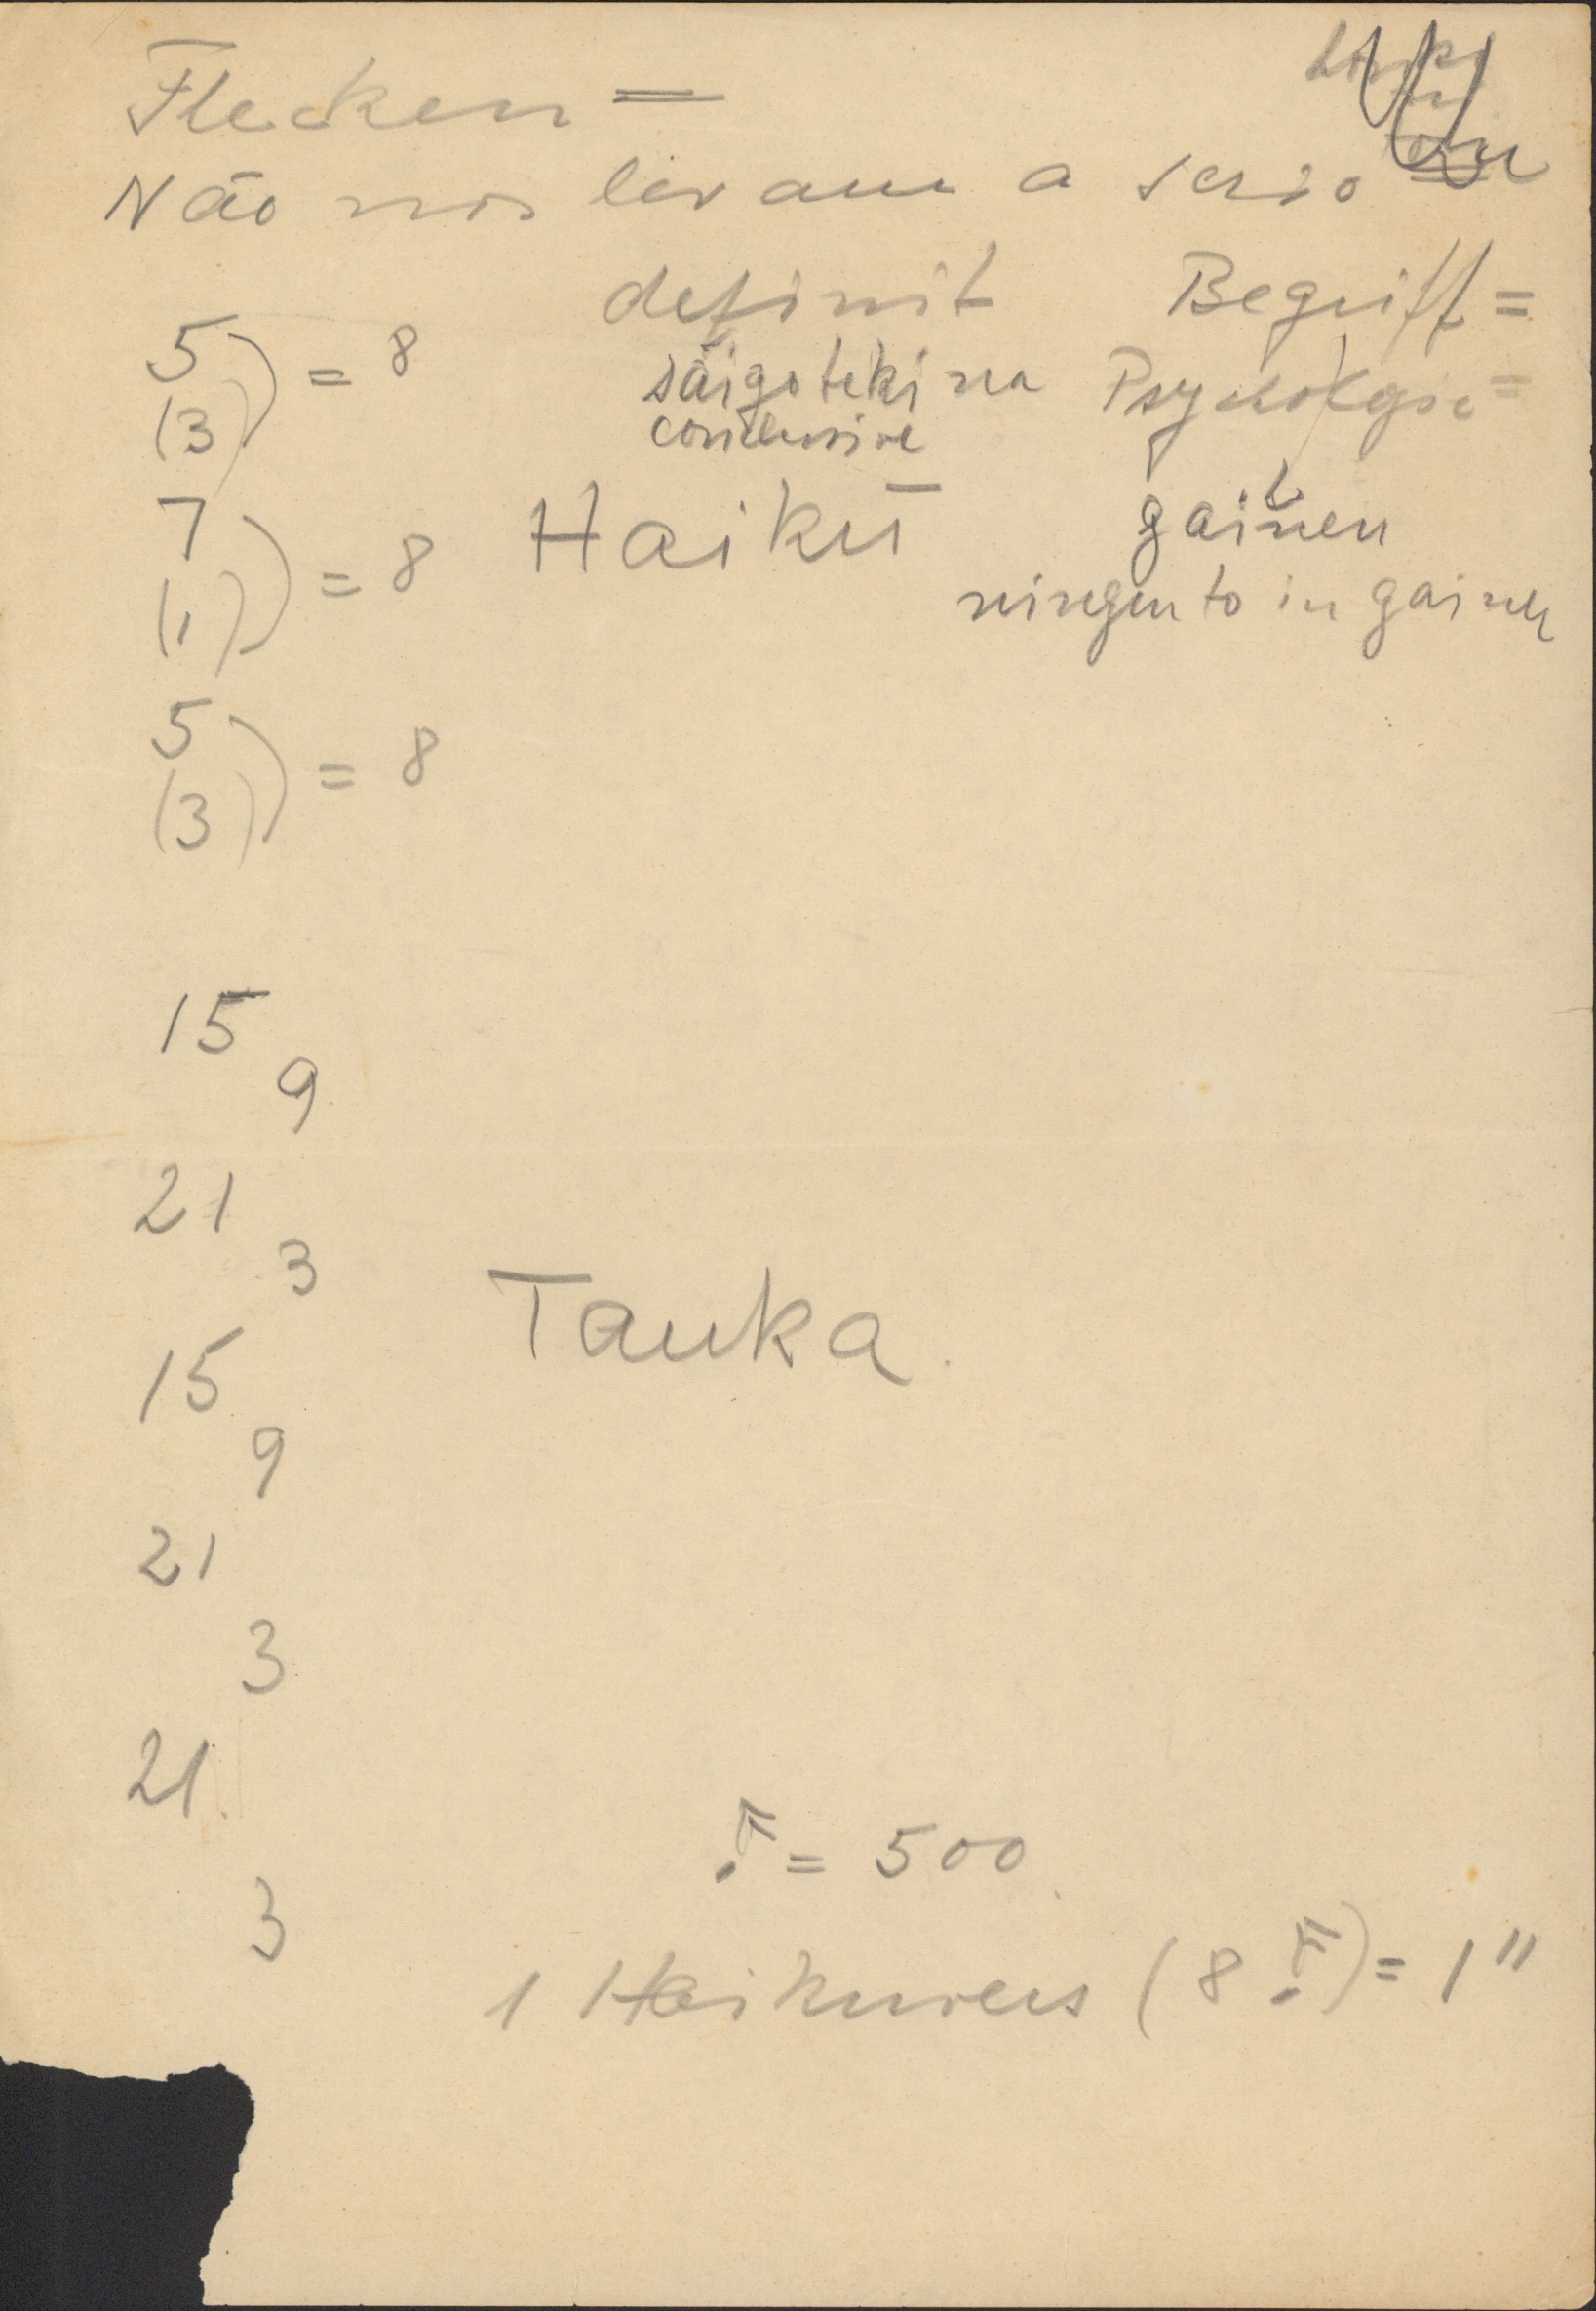 Flecken =
Não nos levam a serio
definit Begriff =
5
(3) ) = 8
säigoteki na Psychologie =
conclusive
7
(1) ) = 8
Haikū
gainen
ningen to in gainen
5
(3) ) = 8
15
9
21
3
15
Tanka
9
21
3
21
3
= 500
1 Haikuvers (8 𝅘𝅥𝅯) = 1"